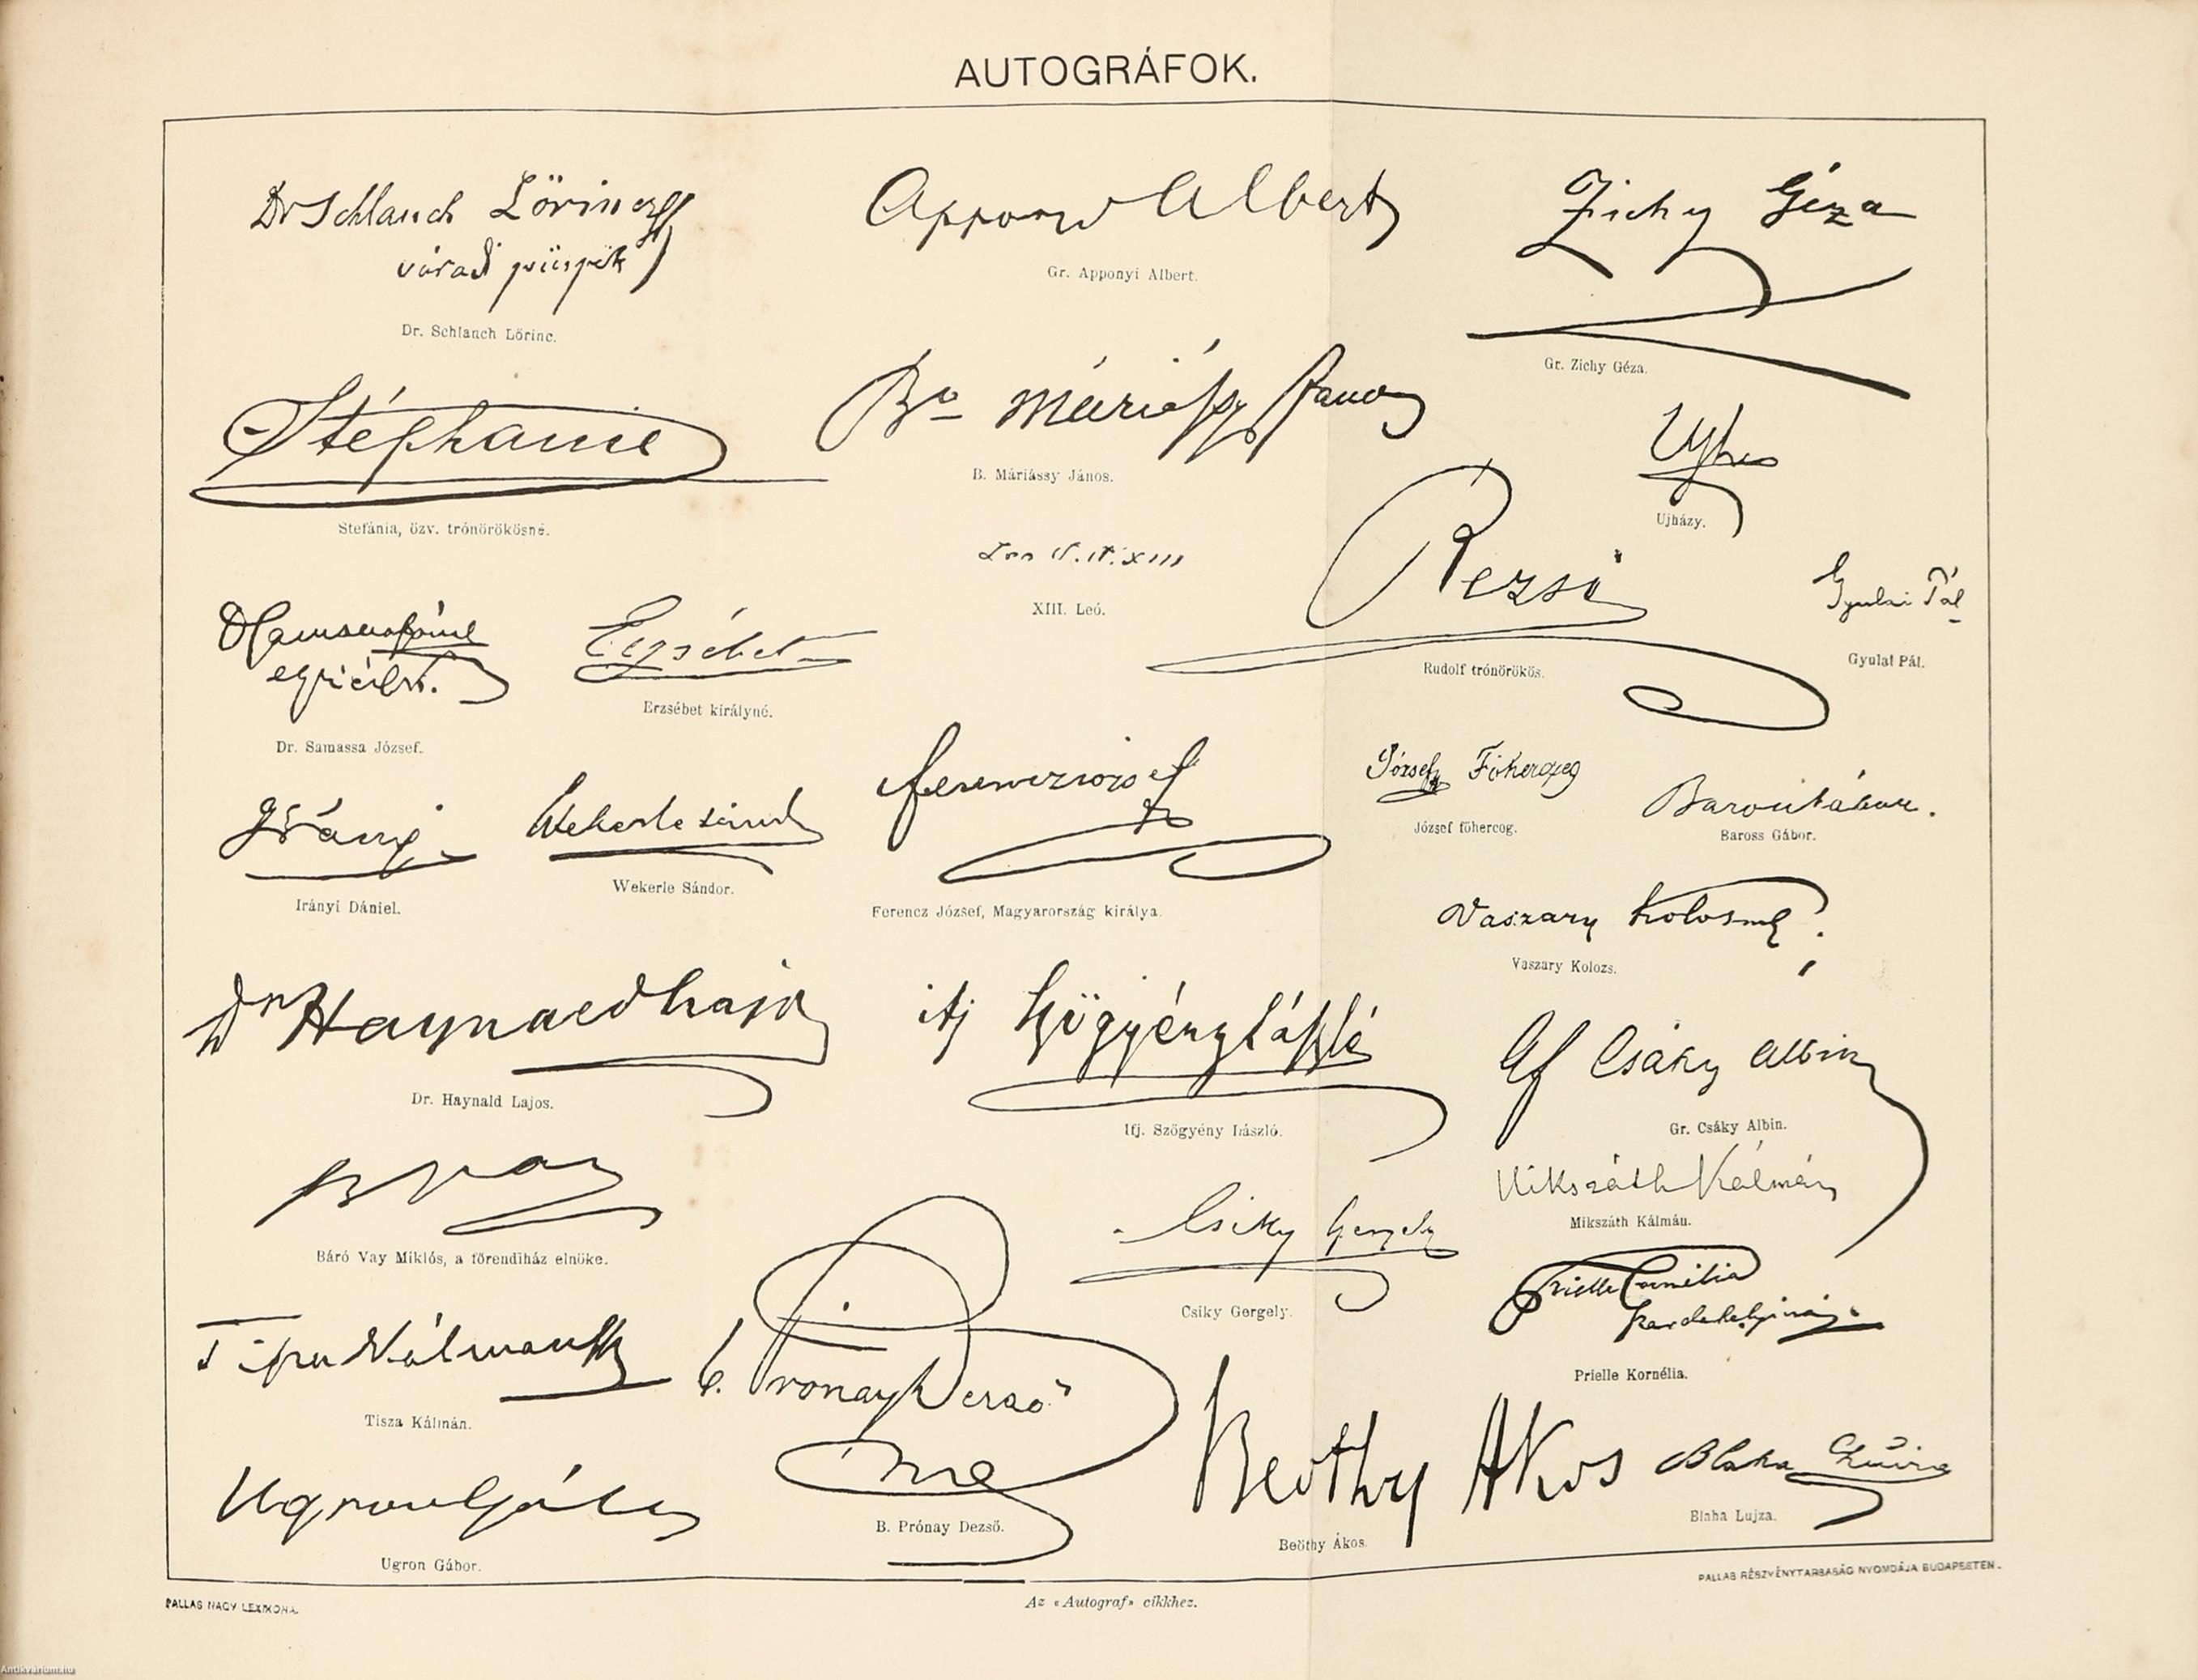 AUTOGRÁFOK.
Dr Schlauch Lörincz
váradi püspök
Dr. Schlauch Lőrinc.
Apponyi Albert
Gr. Apponyi Albert.
Zichy Géza
Gr. Zichy Géza.
Stéphanie
Stefánia, özv. trónörökösné.
Br Máriássy János
B. Máriássy János.
Ujházy.
XIII. Leó.
Rezső
Rudolf trónörökös.
Gyulai Pál
Gyulai Pál.
Dr. Samassa József.
Erzsébet
Erzsébet királyné.
Irányi
Irányi Dániel.
Wekerle Sándor
Wekerle Sándor.
Ferencz József
Ferencz József, Magyarország királya.
József Főherczeg
József főherceg.
Baross Gábor.
Baross Gábor.
Vaszary Kolos
Vaszary Kolozs.
Dr Haynald Lajos
Dr. Haynald Lajos.
ifj Szögyény László
Ifj. Szögyény László.
Gf Csáky Albin
Gr. Csáky Albin.
B Vay
Báró Vay Miklós, a főrendiház elnöke.
Csiky Gergely
Csiky Gergely.
Mikszáth Kálmán
Mikszáth Kálmán.
Prielle Cornélia
Prielle Kornélia.
Tisza Kálmán
Tisza Kálmán.
b. Prónay Dezső
B. Prónay Dezső.
Beöthy Akos
Beöthy Ákos.
Blaha Lujza
Blaha Lujza.
Ugron Gábor
Ugron Gábor.
PALLAS NAGY LEXIKONA.
Az «Autograf» cikkhez.
PALLAS RÉSZVÉNYTARSASÁG NYOMDÁJA BUDAPESTEN.
Antikvarium.hu